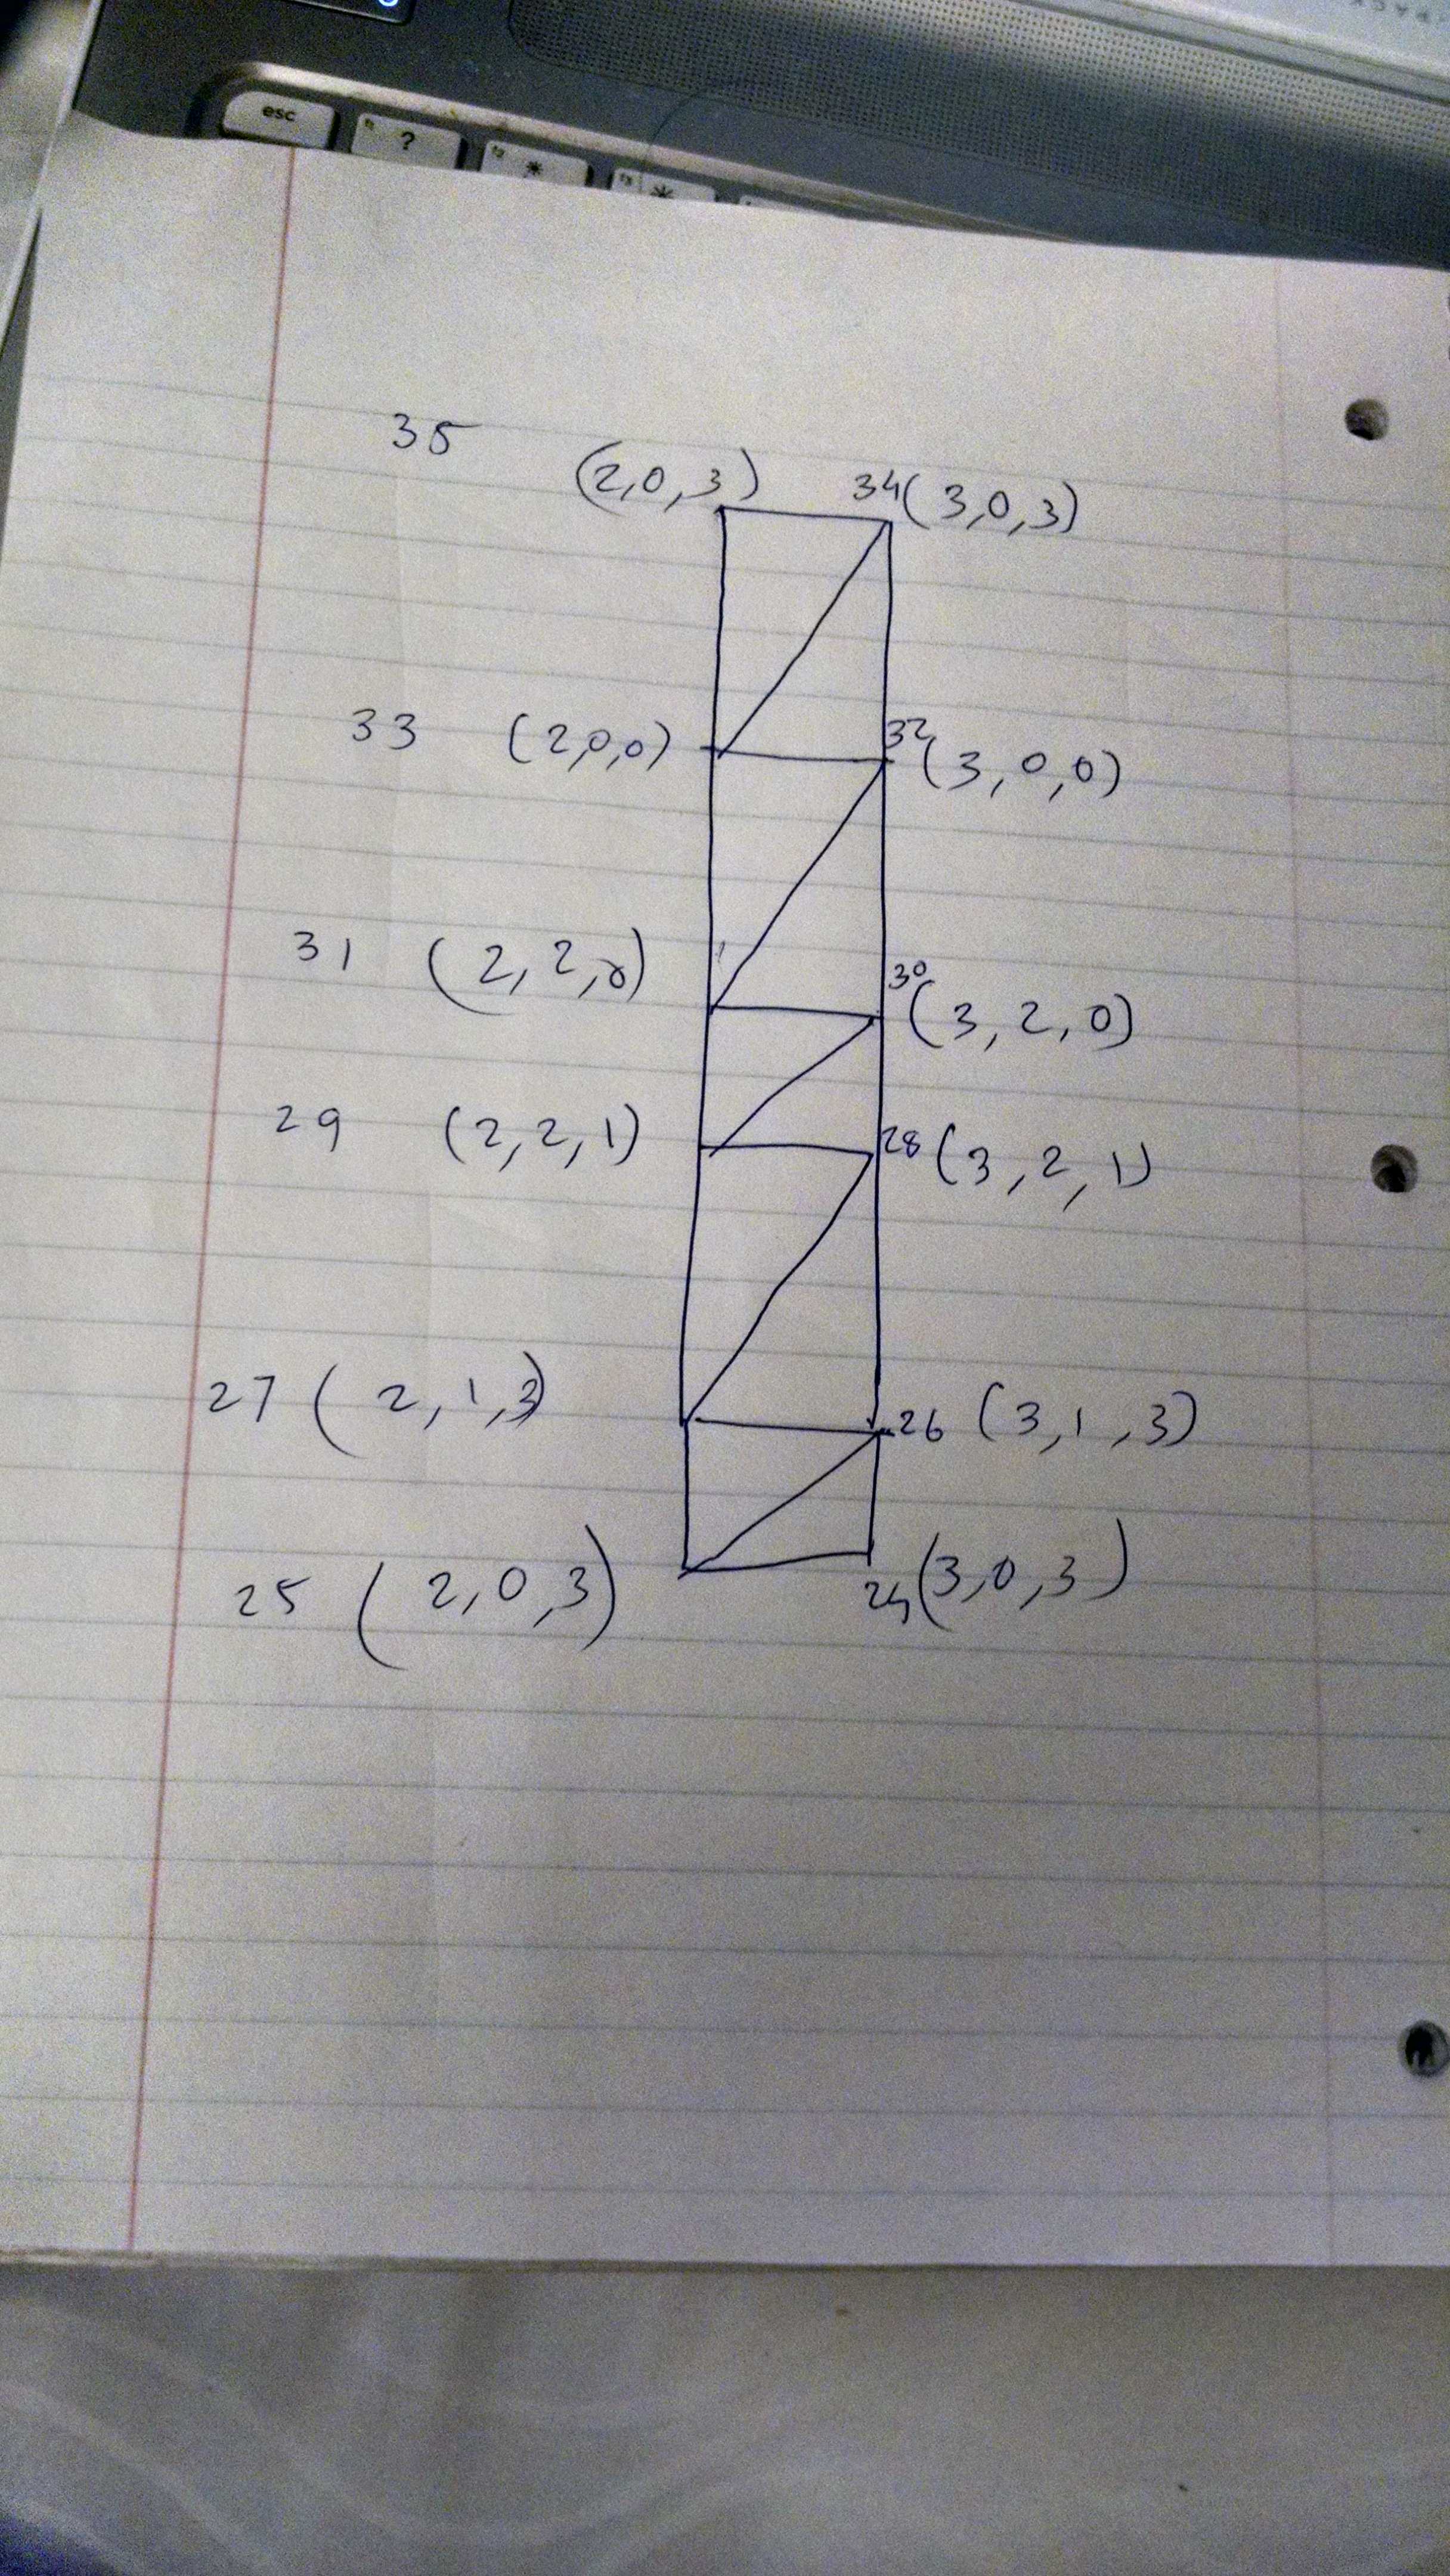 esc
?
35 (2,0,3) 34(3,0,3)
33 (2,0,0) 32(3,0,0)
31 (2,2,0) 30(3,2,0)
29 (2,2,1) 28(3,2,1)
27(2,1,3) 26(3,1,3)
25(2,0,3) 24(3,0,3)